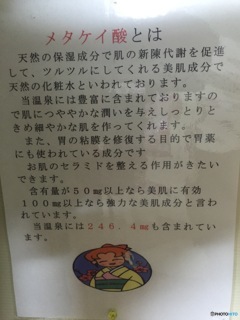 メタケイ酸とは
天然の保湿成分で肌の新陳代謝を促進
して、ツルツルにしてくれる美肌成分で
天然の化粧水といわれております。
当温泉には豊富に含まれておりますの
で肌につややかな潤いを与えしっとりと
きめ細やかな肌を作ってくれます。
また、胃の粘膜を修復する目的で胃薬
にも使われている成分です
お肌のセラミドを整える作用がきたい
できます。
含有量が50㎎以上なら美肌に有効
100㎎以上なら強力な美肌成分と言わ
れています。
当温泉には246.4㎎も含まれてい
ます。
PHOTOHITO